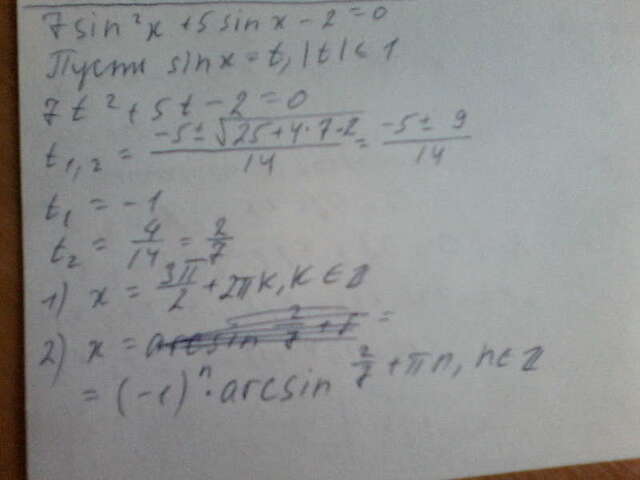 7 sin²x + 5 sin x - 2 = 0
Пусть sin x = t, |t| < 1
7t² + 5t - 2 = 0
t₁,₂ = (-5 ± √(25 + 4·7·2))/14 = (-5 ± 9)/14
t₁ = -1
t₂ = 4/14 = 2/7
1) x = 3π/2 + 2πk, k ∈ Z
2) x = =
= (-1)ⁿ · arcsin 2/7 + πn, n ∈ Z